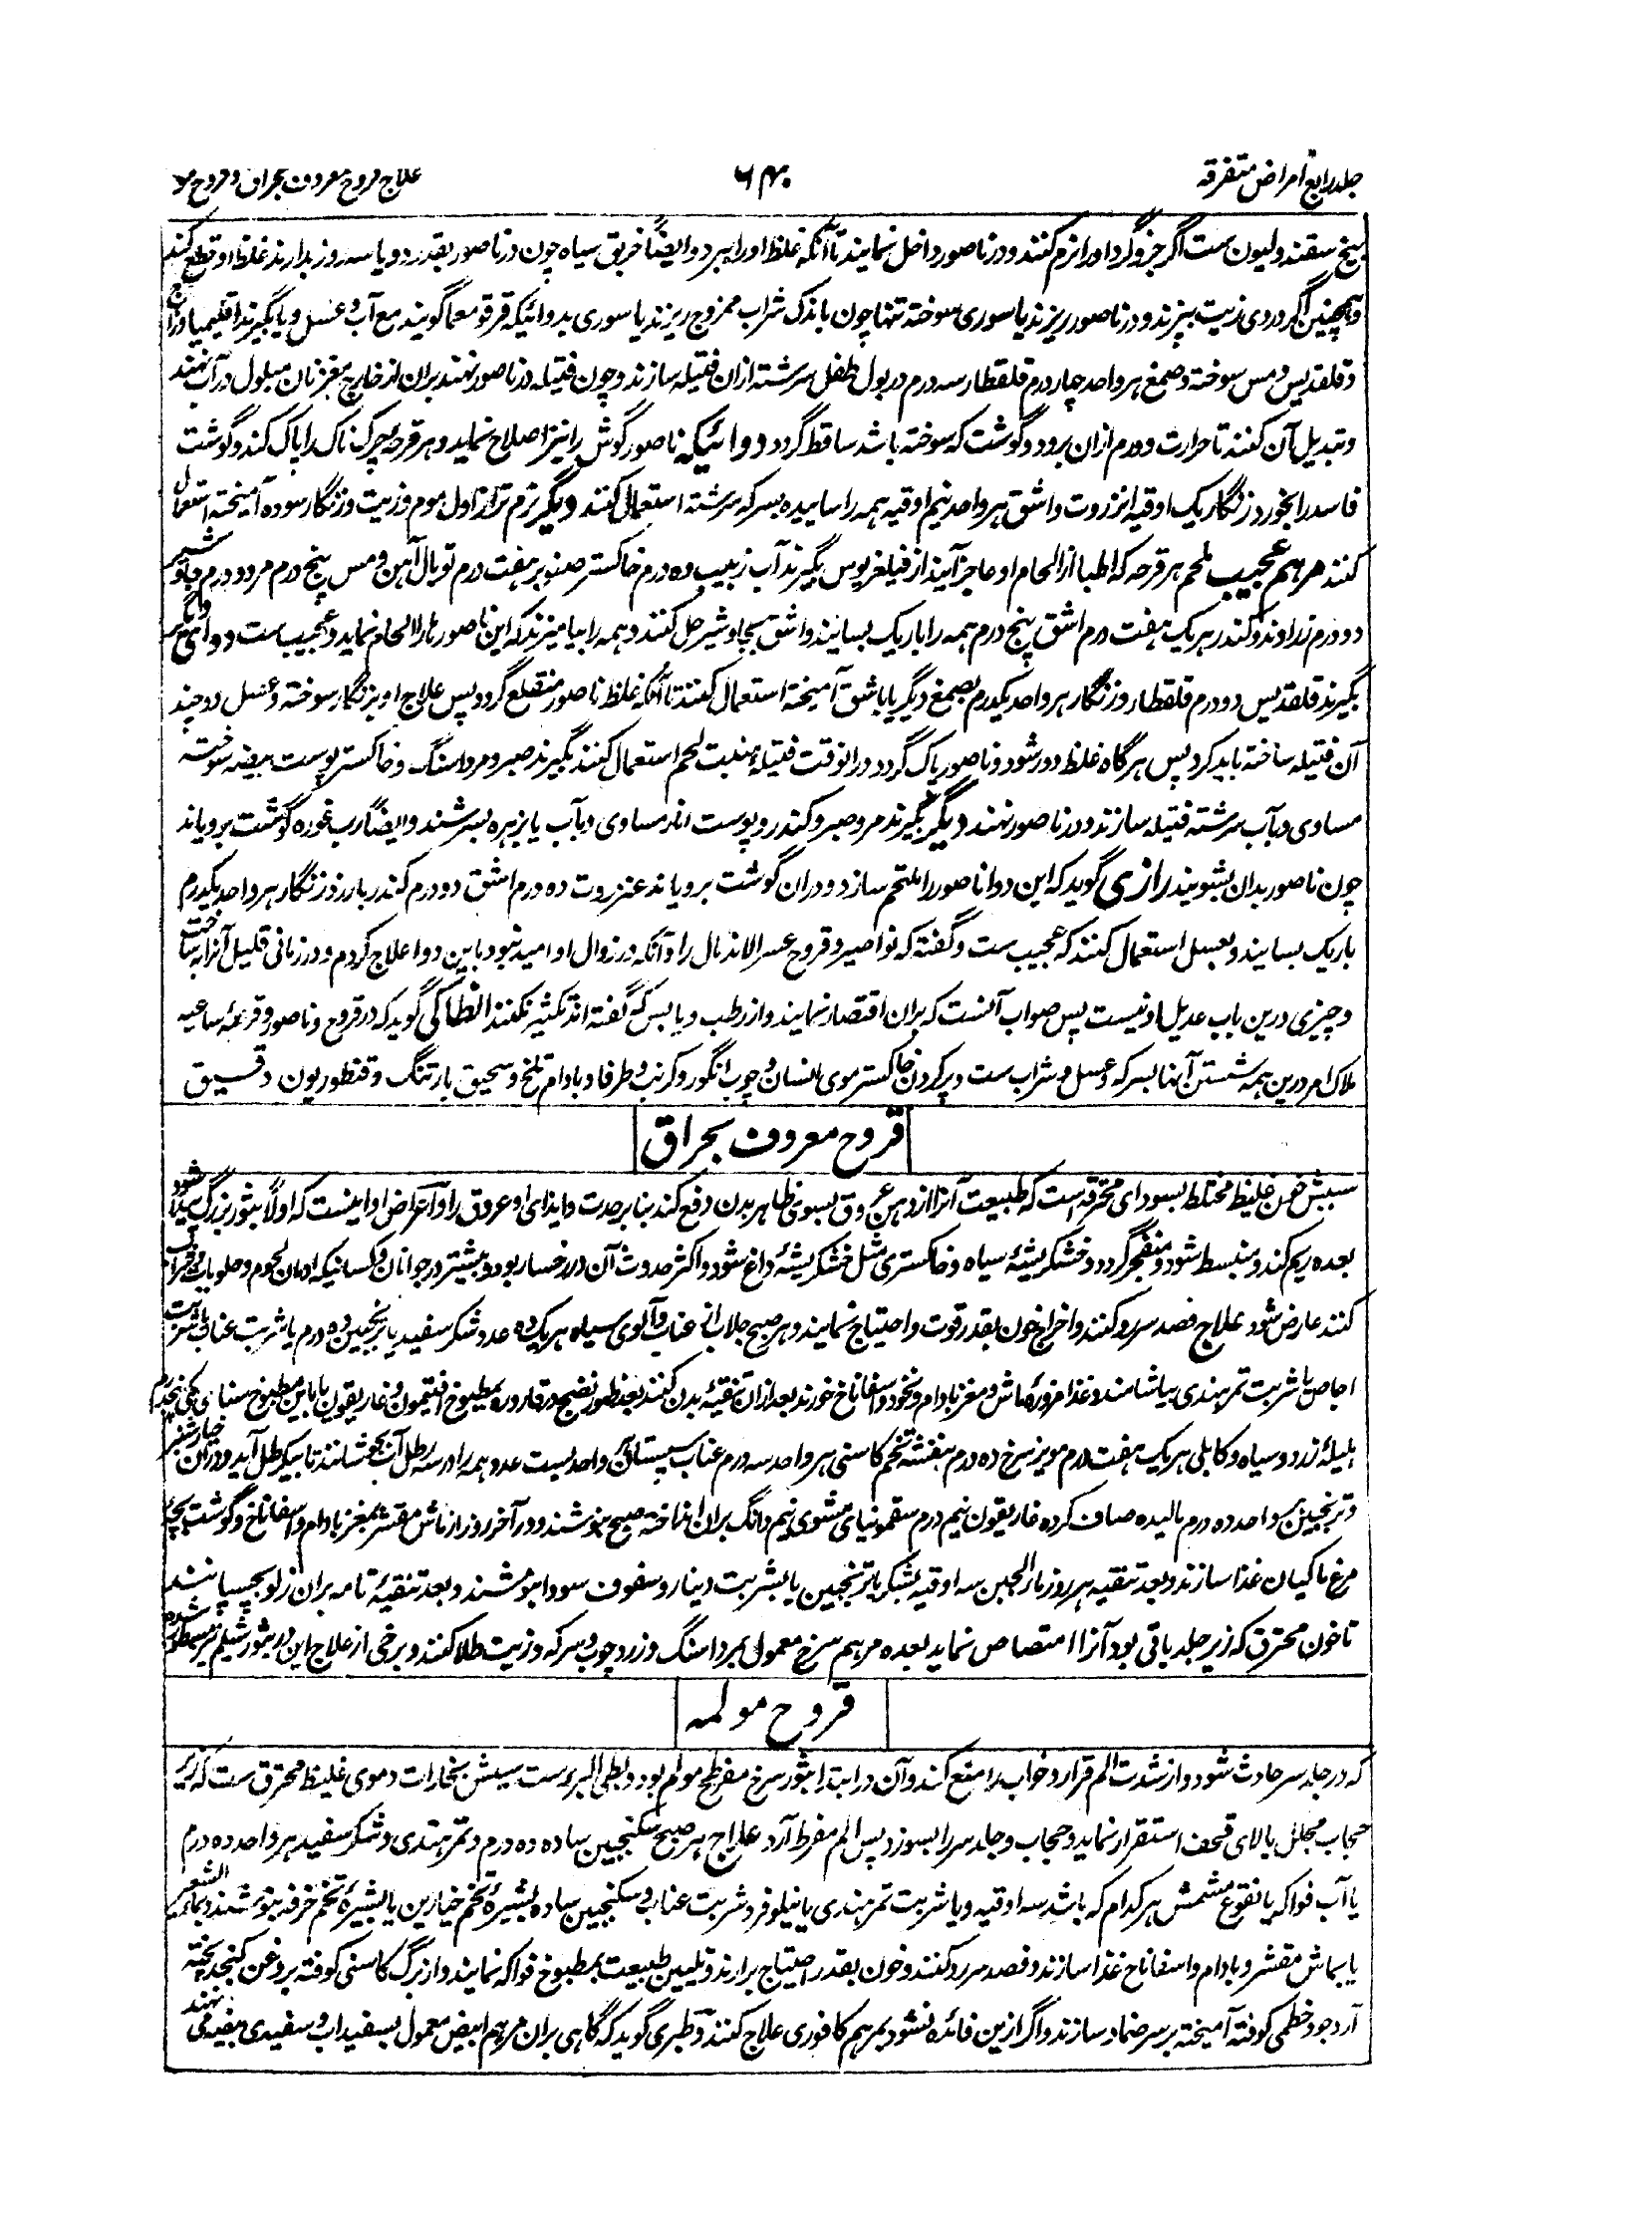 جلد رابع امراض متفرقه
۶۴۰
علاج قروح معروف بحراق و قروح مو
بیخ سقندولیون ست اگر جزو گرد اورا نرم کنند و در ناصور داخل نمایند تا آنکه غلظ اورا ببرد و ایضاً خربق سیاه چون در ناصور بقدر دو یا سه روز بدارند غلظ او قطع کند
و همچنین اگر دردی زیت بپزند و در ناصور ریزند یا سوری سوخته تنها چون باندک شراب ممزوج ریزند یا سوری بدوائیکه قرقومعما گویند مع آب و عسل و یا بگیرند اقلیمیا و زاج
و قلقدیس و مس سوخته و صمغ هر واحد چهار درم قلقطار سه درم در بول طفل سرشته ازان فتیله سازند و چون فتیله در ناصور نهند بران از خارج مغز نان مبلول در آب نهند
و تبدیل آن کنند تا حرارت و ورم ازان برود و گوشت که سوخته باشد ساقط گردد دوائیکه ناصور گوش را نیز اصلاح نماید و هر قرحه چرک ناک را پاک کند و گوشت
فاسد را بخورد زنگار یک اوقیه انزروت و اشق هر واحد نیم اوقیه همه را ساییده بسرکه سرشته استعمال کنند دیگر نرم تر از اول موم و زیت و زنگار سوده آمیخته استعمال
کنند مرهم عجیب ملحم هر قرحه که اطبا از الحام او عاجز آیند از فیلغریوس بگیرند آب زبیب ده درم خاکستر صنوبر هفت درم توبال آهن و مس پنج درم مر دو درم جاوشیر
دو درم زراوند و کندر هر یک هفت درم اشق پنج درم همه را باریک بسایند و اشق بجاوشیر حل کنند و همه را بیامیزند که این ناصورها را الحام نماید و عجیب ست دوای دیگر
بگیرند قلقدیس دو درم قلقطار و زنگار هر واحد یکدرم بصمغ دیگر یا باشق آمیخته استعمال کنند تا آنکه غلظ ناصور منقلع گردد پس علاج او بزنگار سوخته و عسل دو چند
آن فتیله ساخته باید کرد پس هر گاه غلظ دور شود و ناصور پاک گردد در انوقت فتیلهٔ منبت لحم استعمال کنند بگیرند صبر و مرداسنگ و خاکستر پوست بیضه سوخته
مساوی و بآب سرشته فتیله سازند و در ناصور نهند دیگر بگیرند مر و صبر و کندر و پوست انار مساوی و بآب یا بزهره بسرشند و ایضاً رب غوره گوشت برویاند
چون ناصور بدان بشویند رازی گوید که این دوا ناصور را ملتحم سازد و دران گوشت برویاند عنزروت ده درم اشق دو درم کندر بارزد زنگار هر واحد یکدرم
باریک بسایند و بعسل استعمال کنند که عجیب ست و گفته که نواصیر و قروح عسر الاندمال را و آنکه در زوال او امید نبود باین دوا علاج کردم و در زمانی قلیل آنرا به ساخت
و چیزی درین باب عدیل او نیست پس صواب آنست که بران اقتصار نمایند و از رطب و یابس که گفته اند تکثیر نکنند انطاکی گوید که در قروح و ناصور و قرحهٔ ساعیه
ملاک امر درین همه شستن آنها بسرکه و عسل و شراب ست و پر کردن خاکستر موی انسان و چوب انگور و کرنب و طرفا و بادام تلخ و سحیق بارتنگ و قنطوریون دقیق
قروح معروف بحراق
سببش خون غلیظ مختلط بسودای محترقه است که طبیعت آنرا از دهن عروق بسوی ظاهر بدن دفع کند بنابر حدت و ایذای او عروق را و اعراض او اینست که اولاً بثور بزرگ پیدا شود
بعده ریم کند و منبسط شود و منفجر گردد و خشکریشهٔ سیاه و خاکستری مثل خشکریشهٔ داغ شود و اکثر حدوث آن در رخسار بود و بیشتر در جوانان و کسانیکه ادمان لحوم و حلویات و شراب
کنند عارض شود علاج فصد سررو کنند و اخراج خون بقدر قوت و احتیاج نمایند و هر صبح جلاب از عناب و آلوی سیاه هر یک ده عدد شکر سفید یا ترنجبین ده درم یا شربت عناب یا شربت
اجاص یا شربت تمر هندی بیاشامند و غذا مزورهٔ ماش و مغز بادام و نخود و اسفاناخ خورند بعد ازان تنقیهٔ بدن کنند بعد ظهور نضج در قاروره بمطبوخ افتیمون و غاریقون یا باین مطبوخ سنای مکی پنجدرم
هلیلهٔ زرد و سیاه و کابلی هر یک هفت درم مویز سرخ ده درم بنفشه تخم کاسنی هر واحد سه درم عناب سپستان هر واحد بیست عدد همه را در سه رطل آب بجوشانند تا بیک رطل آید و دران خیارشنبر
و ترنجبین هر واحد ده درم مالیده صاف کرده غاریقون نیم درم سقمونیای مشوی نیم دانگ بران انداخته صبح بنوشند و در آخر روز از ماش مقشر بمغز بادام و اسفاناخ و گوشت بچه
مرغ ماکیان غذا سازند و بعد تنقیه هر روز ماء الجبن سه اوقیه بشکر یا ترنجبین یا بشربت دینار و سفوف سودا بنوشند و بعد تنقیهٔ تامه بران زلو بچسپانند
تا خون محترق که زیر جلد باقی بود آنرا امتصاص نماید بعده مرهم سرخ معمول بمرداسنگ و زردچوب و سرکه و زیت طلا کنند و برخی از علاج این در بثور شیلم نیز مسطور شده
قروح مولمه
که در جلد سر حادث شود و از شدت الم قرار و خواب را منع کند و آن در ابتدا بثور سرخ مفرطح مولم بود و بطی البرء ست سببش بخارات دموی غلیظ محترق ست که زیر
حجاب مجلل بالای قحف استقرار نماید و حجاب و جلد سر را بسوزد پس الم مفرط آرد علاج هر صبح سکنجبین ساده ده درم و تمر هندی و شکر سفید هر واحد ده درم
یا آب فواکه یا نقوع مشمش هر کدام که باشد سه اوقیه و یا شربت تمر هندی یا نیلوفر و شربت عناب و سکنجبین ساده بشیرهٔ تخم خیارین یا بشیرهٔ تخم خرفه بنوشند و بماء الشعیر
یا بماش مقشر و بادام و اسفاناخ غذا سازند و فصد سررو کنند و خون بقدر احتیاج برارند و تلیین طبیعت بمطبوخ فواکه نمایند و از برگ کاسنی کوفته بروغن کنجد پخته
آرد جو و خطمی کوفته آمیخته بر سر ضماد سازند و اگر ازین فائده نشود بمرهم کافوری علاج کنند و طبری گوید که گاهی بران مرهم ابیض معمول بسفیداب و سفیدی بیضه می نهند